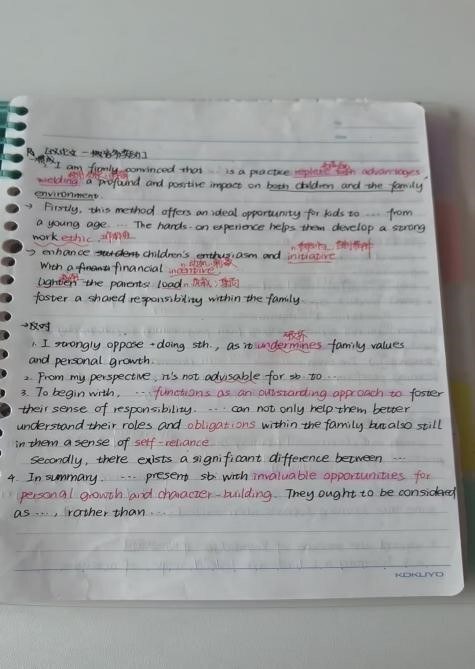 I am firmly convinced that ... is a practice replete with advantages,
wielding a profound and positive impact on both children and the family
environment.
→ Firstly, this method offers an ideal opportunity for kids to ... from
a young age. ... The hands-on experience helps them develop a strong
work ethic.
→ enhance student children's enthusiasm and initiative
With a financi financial incentive
Lighten the parents' load
foster a shared responsibility within the family.
→反对
1. I strongly oppose +doing sth., as it undermines family values
and personal growth.
2. From my perspective, it's not advisable for sb to ...
3. To begin with, ... functions as an outstanding approach to foster
their sense of responsibility. ... can not only help them better
understand their roles and obligations within the family but also still
in them a sense of self-reliance
Secondly, there exists a significant difference between ...
4. In summary. ... present sb with invaluable opportunities for
personal growth and character-building. They ought to be considered
as ..., rather than ...
KOKUYO